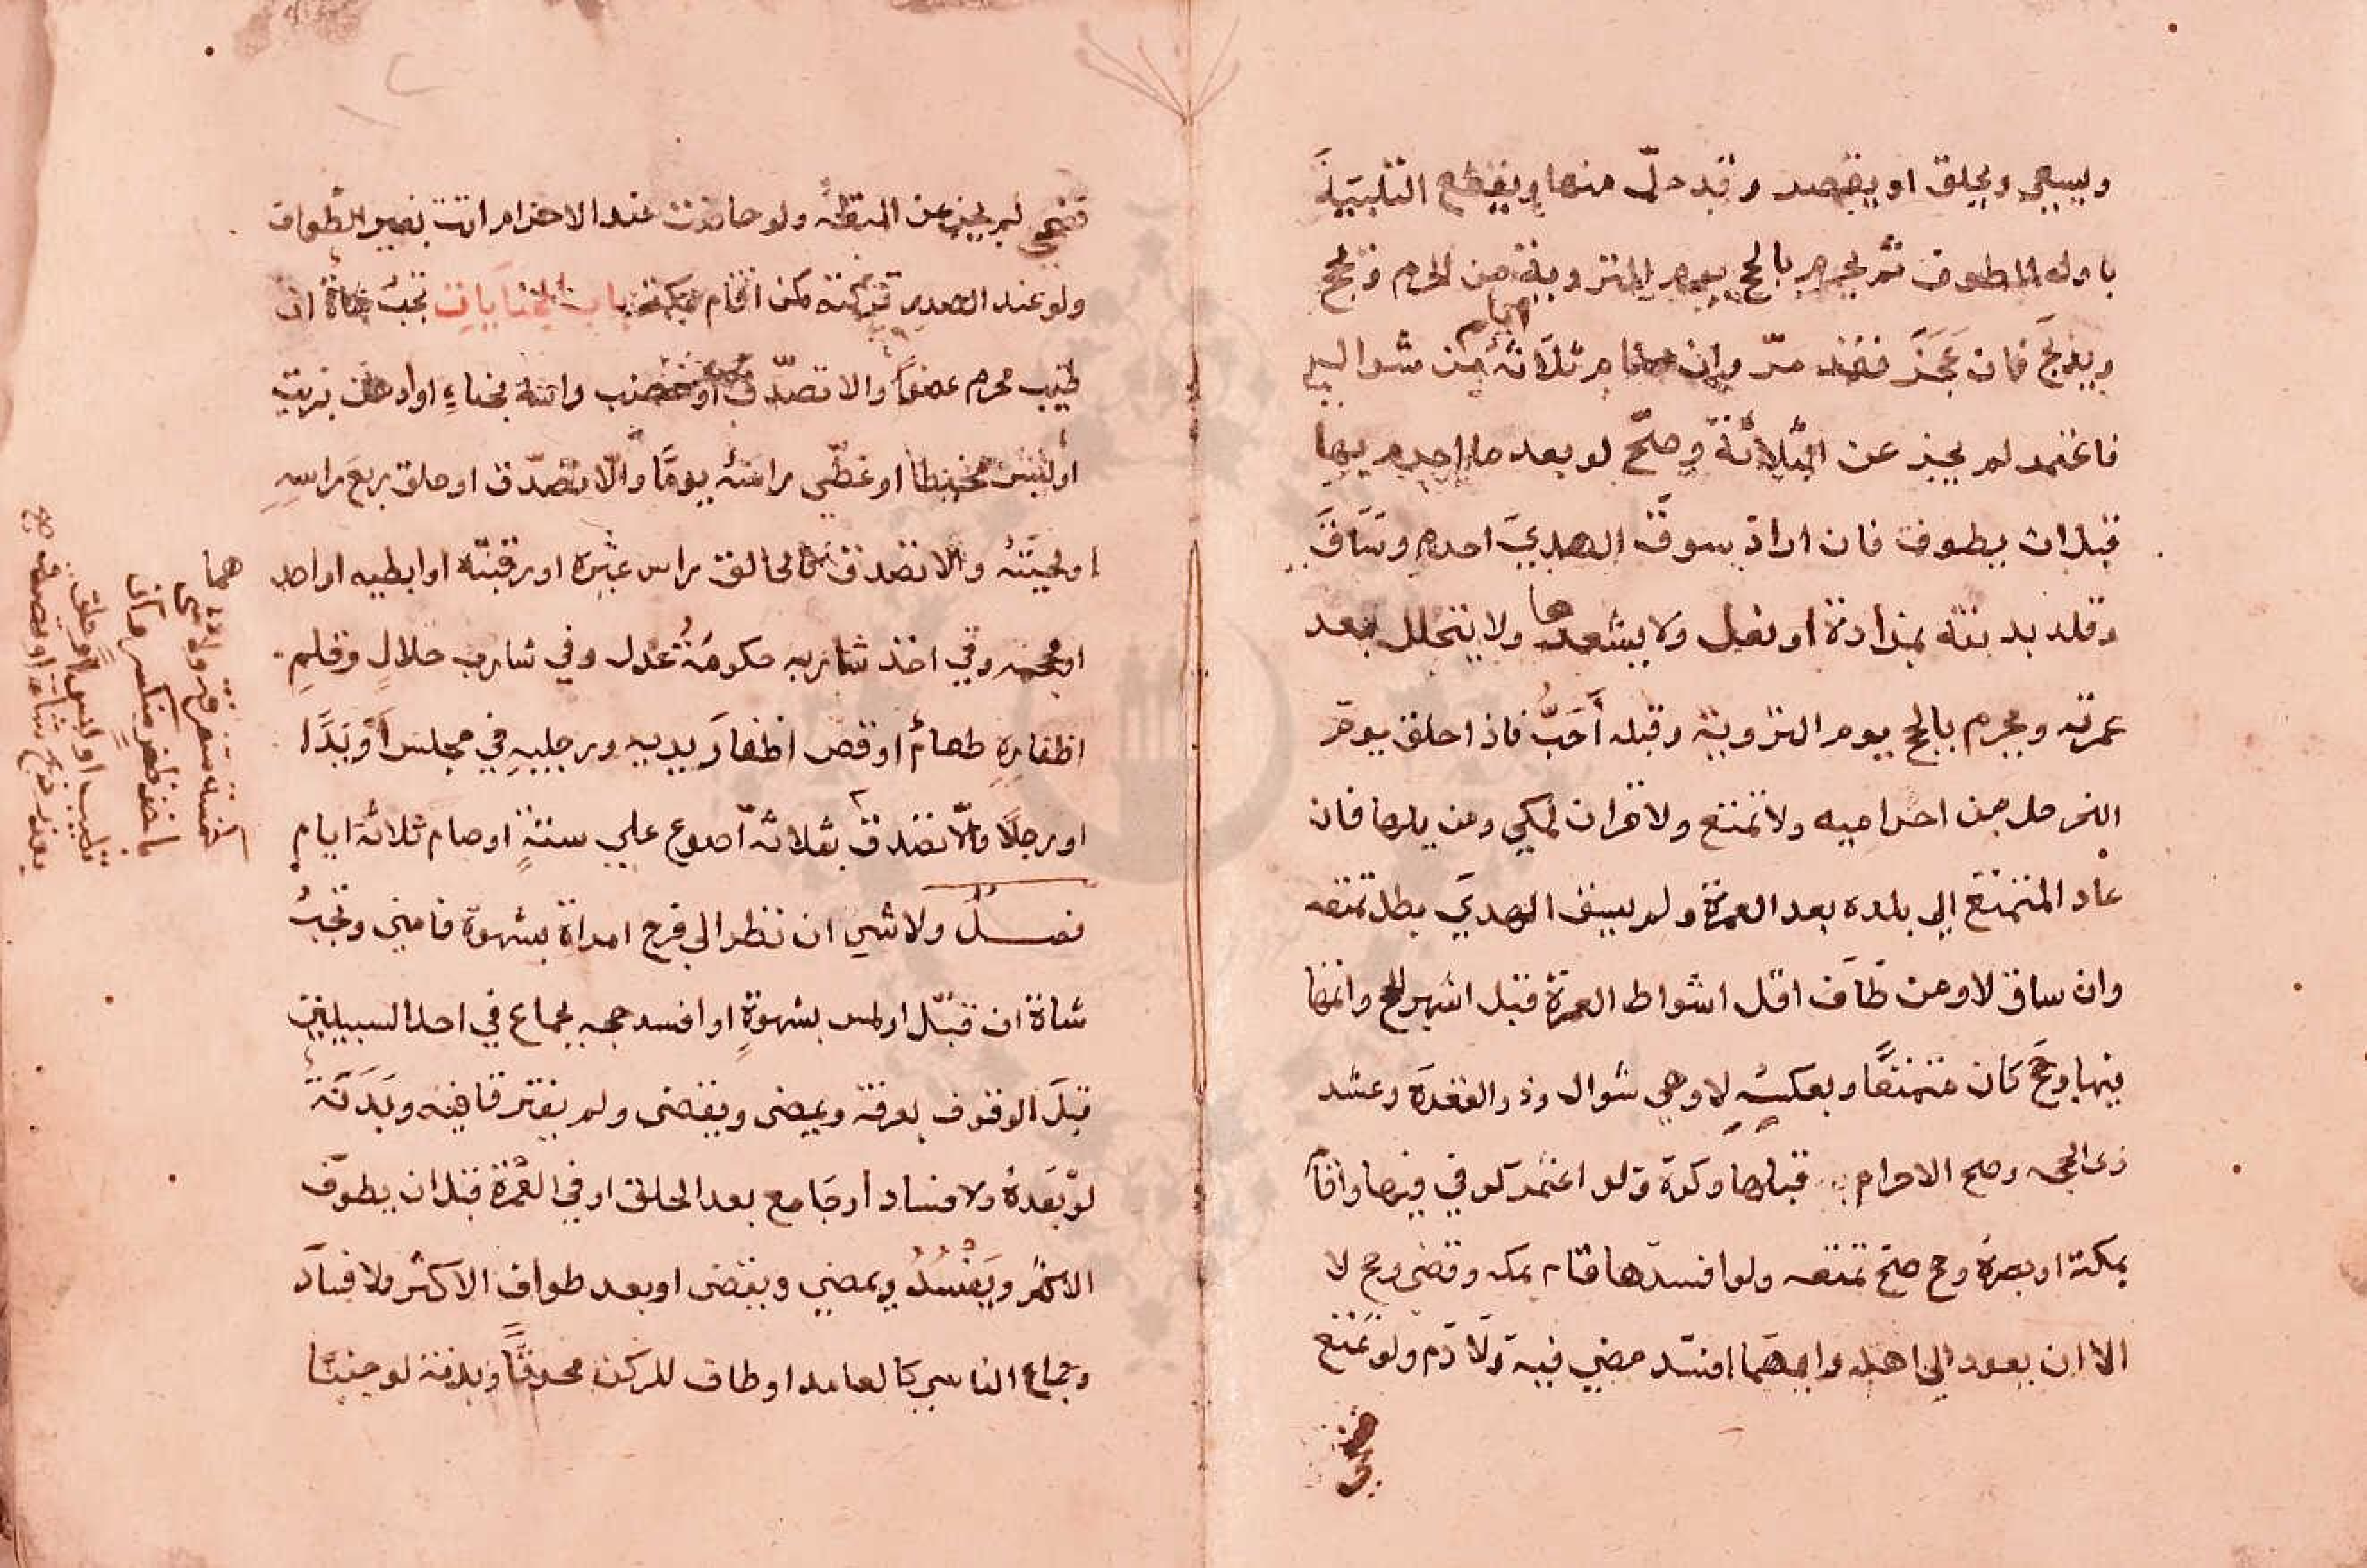 ويسعي ويحلق او يقصر وقد حلّ منها ويقطع التلبيةَ
باول الطواف ثم يحرم بالحج يوم التروية من الحرم ويحج
ويذبح فان عَجَزَ فقد مرّ وان صام ثلاثة ايام من شوال
فاعتمر لم يجز عن الثلاثة وصحّ لو بعد ما احرم بها
قبل ان يطوف فان اراد سوق الهدي احرم وسَاقَ
وقلد بدنته بمزادة او نعل ولا يشعرها ولا يتحلل بعد
عمرته ويحرم بالحج يوم التروية وقبله أحَبُّ فاذا حلق يوم
النحر حل من احراميه ولا تمتع ولا قران لمكي ومن يليها فان
عاد المتمتع الي بلده بعد العمرة ولم يسق الهدي بطل تمتعه
وان ساق لا ومن طاف اقل اشواط العمرة قبل اشهر الحج واتمها
فيها وحَج كان متمتعًا وبعكسه لا وهي شوال وذو القعدة وعشر
ذي الحجه وصح الاحرام به قبلها وكره ولو اعتمر كوفي فيها واقام
بمكة او بصرة وحج صحّ تمتعه ولو افسدها فقام بمكه وقضى وحج لا
الا ان يعود الي اهله وايهما افسد مضي فيه ولا دم ولو تمتع
فضحي
فضحي لم يجز عن المتعة ولو حاضت عند الاحرام اتت بغير الطواف
ولو عند الصدر تركته كمن اقام بمكة باب الجنايات تجبُ شاة ان
طيّب محرم عضوًا والا تصدّق او خضب راسه بحناءٍ او ادهن بزيت
او لبس مخيطا او غطّي راسهُ يومًا والّا تصدّق او حلق ربعَ راسِهِ
او لحيَتهُ والا تصدق كالحالق راس غيرِه او رقبتَه او ابطيه او احد
او محجمه وفي اخذ شاربه حكومةُ عدل وفي شارب حلالٍ وقلمِ
اظفارِهِ طعامٌ او قص اظفارَ يديه ورجليهِ في مجلس اَوْ يَدًا
او رجلًا والّا تصدق
كخمسة متفرقه ولا شي
باخذ ظفرٍ منكسرٍ وان
تطيب او لبس او حلق
بعذر ذبح شاة او تصدق
بثلاثة أصوع علي ستةٍ او صام ثلاثة ايام
فصـــلٌ ولا شي ان نظر الى فرج امراة بشهوة فامني وتجبُ
شاة ان قبّل او لمس بشهوةٍ او افسد حجه بجماع في احد السبيلين
قبلَ الوقوف بعرفة ويمضى ويقضى ولم يفترقا فيه وبَدَنَة
لوْ بَعْدهُ ولا فساد او جَامع بعد الحلق او في العُمْرة قبل ان يطوف
الاكثر ويَفْسُدُ ويمضي ويقضى او بعد طواف الاكثر ولا فسادَ
وجماع الناسي كالعامد او طاف للركن محدثًا وبدنة لو جنبًا